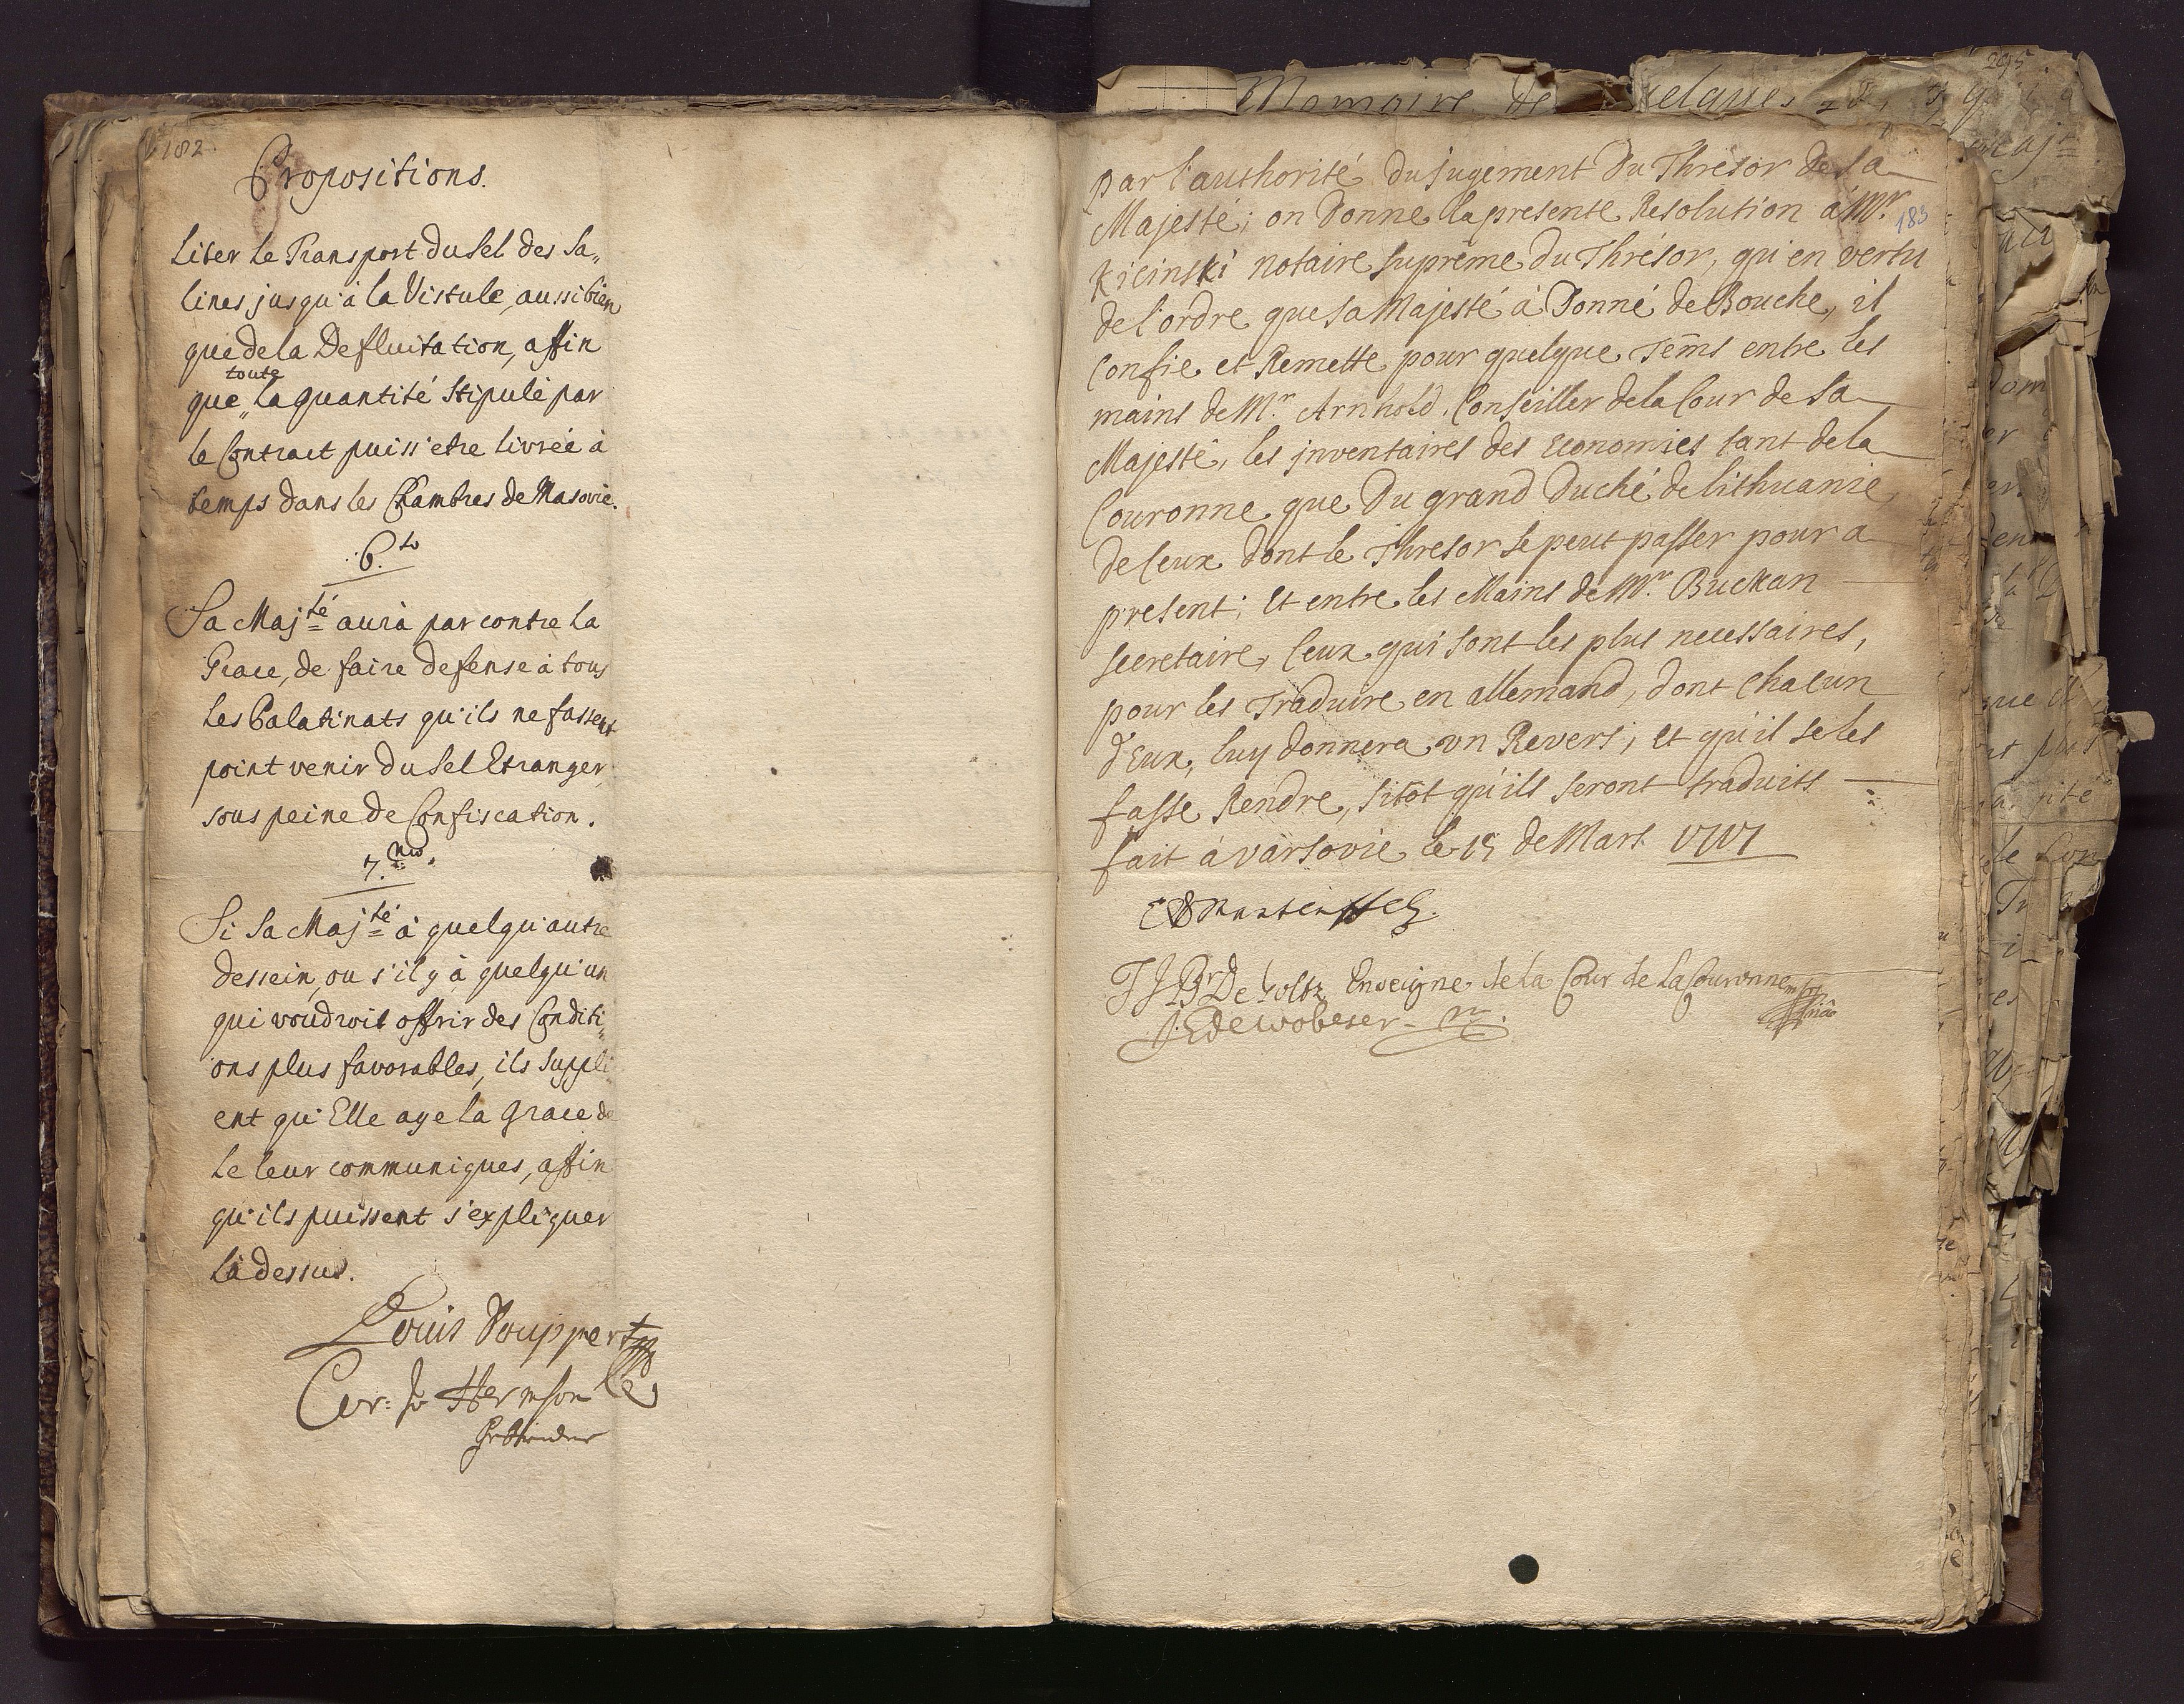 182
Propositions.
liter le Transport du Sel des Sa„
lines jusqu'à la Vistule, aussi bien
que de la Defluitation, affin
toute
que „ la quantité Stipulé par
le Contract puiss'etre livrée à
temps dans les Chambres de Masovie.
6.to
Sa Maj.té aura par contre la
Grace, de faire defense à tous
les Palatinats qu'ils ne fassent
point venir du Sel Etranger
sous peine de Confiscation.
7.mo
Si Sa Maj.té à quelqu'autre
dessein, ou s'il y à quelqu'un
qui voudroit offrir des Conditi„
ons plus favorables, ils Suppli
ent qu'Elle aye la Grace de
le leur communiques, affin
qu'ils puissent s'expliquer
là dessus.
Louis
Memoire de
295
par l'authorité du Jugement Du Thrésor de Sa
Majesté; on Donne la presente Resolution à Mr.
183
Kicinski notaire Suprême Du Thrésor, qu'en vertu
de l'ordre que Sa Majesté à Donné de Bouche, il
Confie et Remette pour quelque Tem̄s entre les
mains de Mr. Arnhold, Conseiller de la Cour de Sa
Majesté, les jnventaires des Economies tant de la
Couronne que Du grand Duché de Lithuanie,
de Ceux dont le Thresor se peut passer pour a
present; Et entre les Mains de Mr. Buckan
Secretaire, Ceux qui Sont les plus necessaires,
pour les Traduire en allemand, dont Chacun
d'Eux, luy donnera un Revers; et qu'il se les
fasse Rendre, Sitôt qu'ils seront traduits
fait à Varsovie le 15 de Mars
De Goltz Enseigne de la Cour de la Couronne
de Wobeser